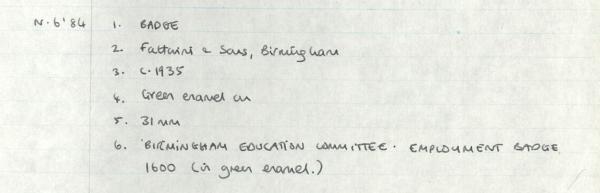 N.6'84 1. BADGE
2. Fattorini & Sons, Birmingham
3. C.1935
4. Green enamel on
5. 31 mm
6. 'BIRMINGHAM EDUCATION COMMITTEE. EMPLOYMENT BADGE
1600 (in green enamel.)